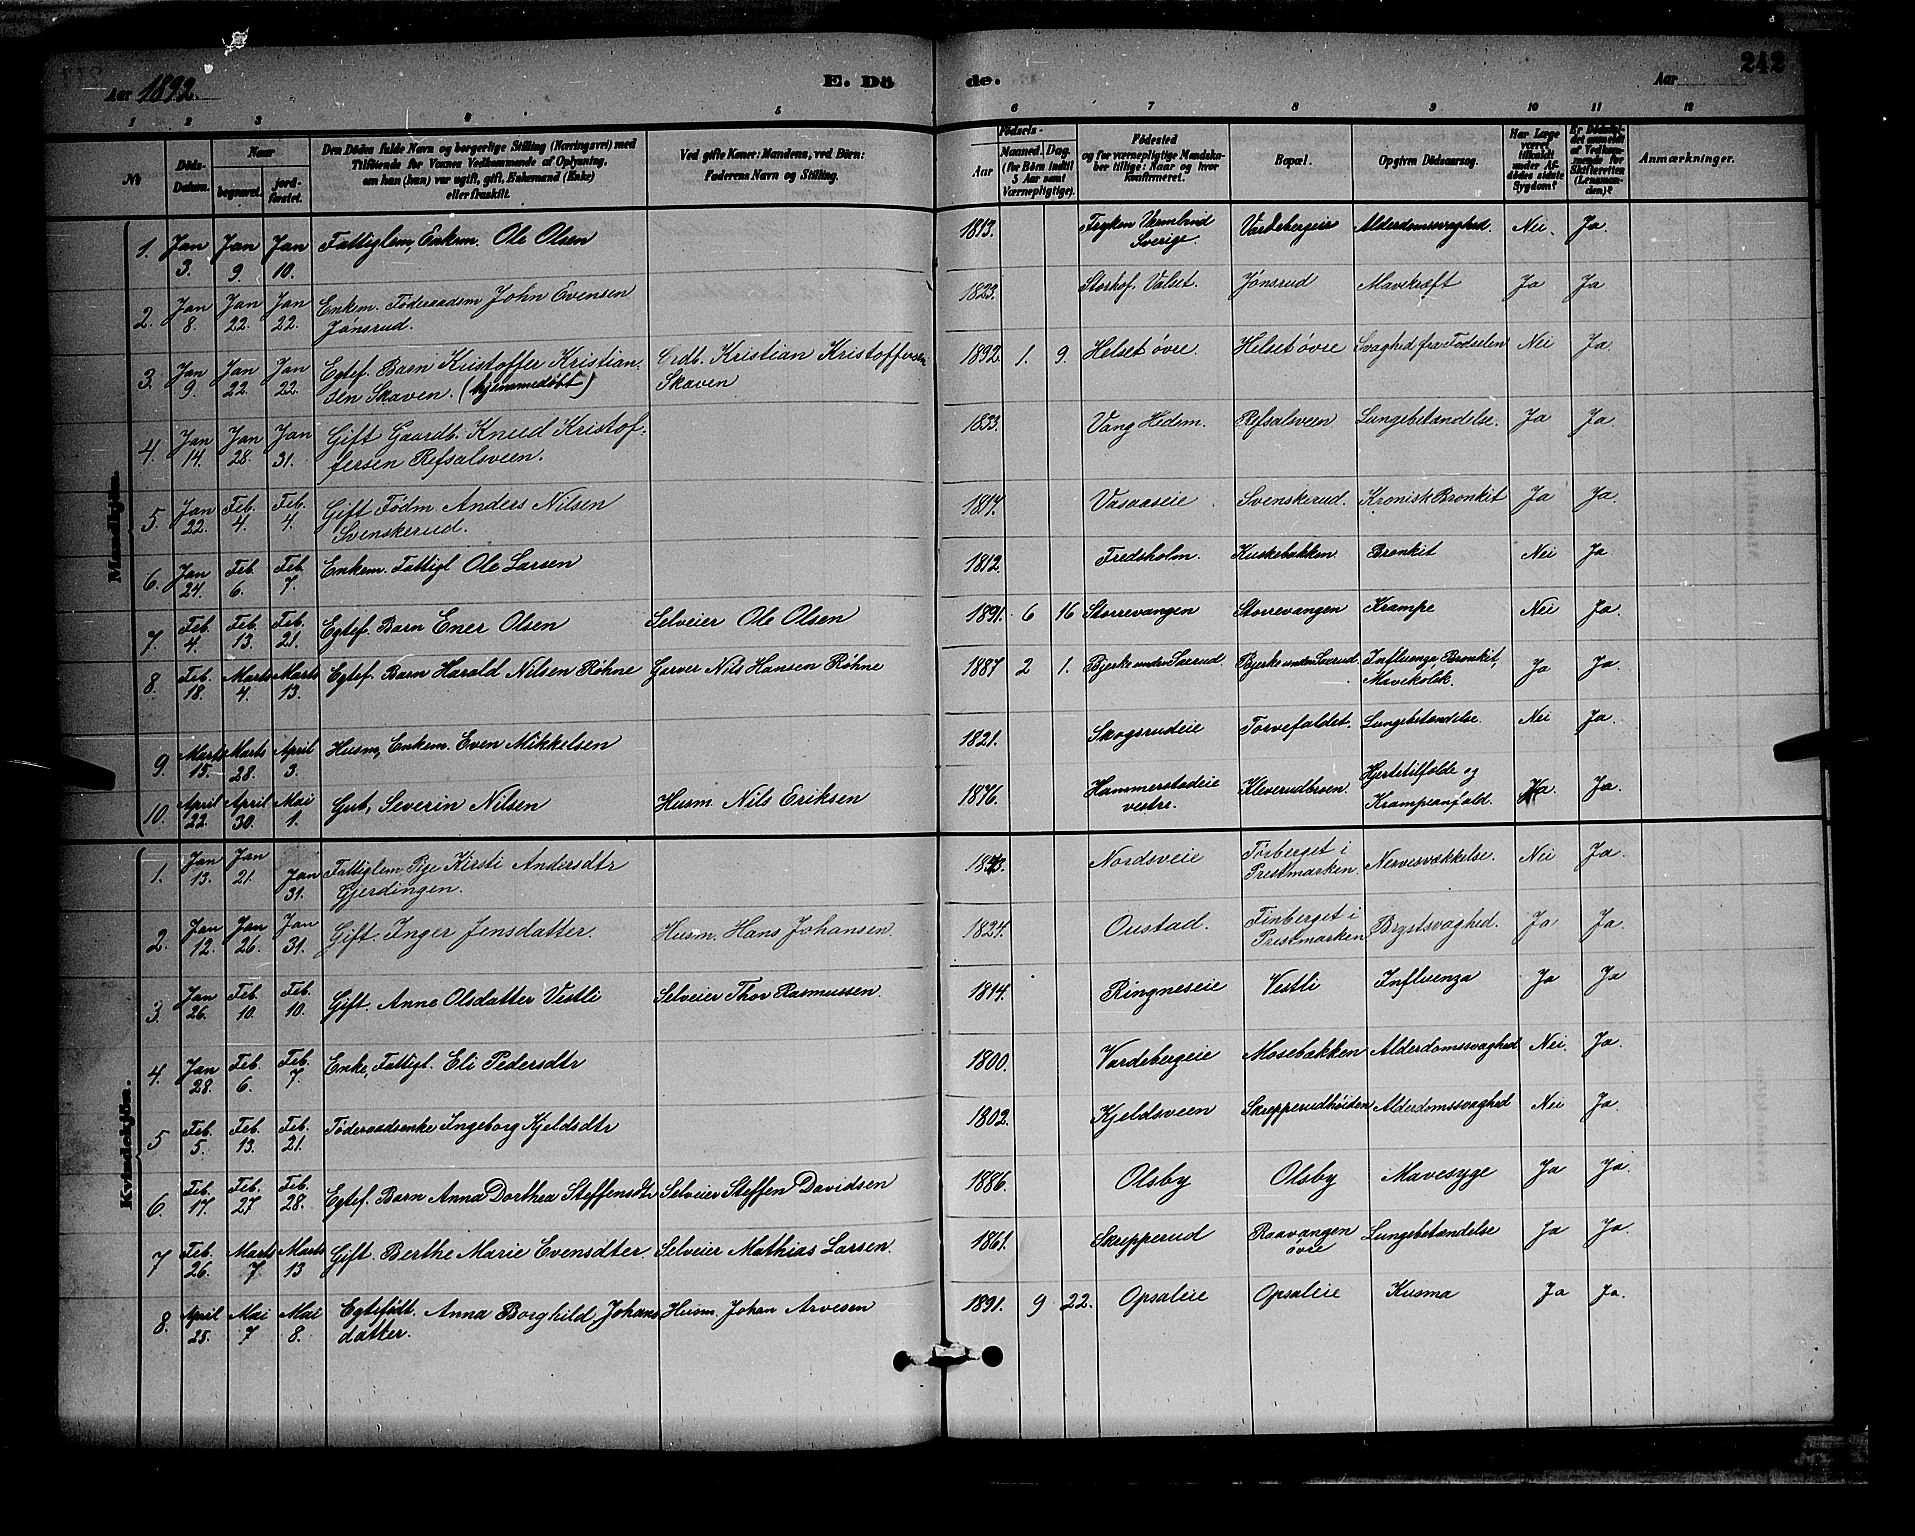 Aar 1892.
E. Dö
de.
Aar
242
1 2 3 4 5
6 7 8 9 10 11 12
№
Döds-
Datum.
Naar
begravet.
jord-
fæstet.
Den Dödes fulde Navn og borgerlige Stilling (Næringsvei) med
Tilföiende for Voxnes Vedkommende af Oplysning,
om han (hun) var ugift, gift, Enkemand (Enke)
eller fraskilt.
Ved gifte Koner: Mandens, ved Börn:
Faderens Navn og Stilling.
Födsels-
Aar
Maaned. Dag.
(for Börn indtil
5 Aar samt
Værnepligtige).
Födested
og for værnepligtige Mandska-
ber tillige: Naar og hvor
konfirmeret.
Bopæl.
Opgiven Dödsaarsag.
Har Læge
været
tilkaldt
under Af-
dødes sidste
Sygdom?
Er Dödsfal-
det anmeldt
af Vedkom-
mende for
Skifteretten
(Lensman-
den)?
Anmærkninger.
Mandkjön.
1. Jan 3. Jan 9. Jan 10. Fattiglem, Enkem. Ole Olsen 1813. Fryken Vermland Sverige. Vardebergeie Alderdomssvaghed. Nei. Ja
2. Jan 8. Jan 22. Jan 22. Enkem. Föderaadsm John Evensen 1823. Storhof. Valset. Jónsrud Mavekræft Ja Ja
Jónsrud.
3. Jan 9. Jan 22. Jan 22. Egtef. Barn Kristoffer Kristian- Grdb. Kristian Kristoffersen 1892. 1. 9. Helset övre. Helset övre Svaghed fra Födselen Nei Ja
sen Skaven. (hjemmedöbt) Skaven
4. Jan 14. Jan 28. Jan 31. Gift Gaardb. Knud Kristof- 1833. Vang Hedem. Refsalsveen Lungebetændelse. Ja Ja
fersen Refsalsveen.
5. Jan 22. Feb. 4. Feb. 4. Gift Födm Anders Nilsen 1814. Vasaaseie Svenskerud. Kronisk Bronkit Ja Ja.
Svenskerud.
6. Jan 24. Feb. 6. Feb. 7. Enkem. Fattigl Ole Larsen 1812. Fredsholm. Kuskebakken Bronkit Nei Ja
7. Feb. 4. Feb. 13. Feb. 21. Egtef. Barn Ener Olsen Selveier Ole Olsen 1891. 6 16 Storrevangen Storrevangen Krampe Nei Ja.
8. Feb. 18. Marts 4. Marts 13. Egtef. Barn Harald Nilsen Röhne Garver Nils Hansen Röhne 1887 2 1. Bjerke under Saxrud Bjerke under Saxrud Influenza, Bronkit, Ja Ja.
Mavekolik.
9. Marts 15. Marts 28. April 3. Husm, Enkem. Even Mikkelsen 1821. Skogsrudeie Torvefaldet. Lungebetændelse. Nei Ja.
10. April 22. April 30. Mai 1. Gut, Severin Nilsen Husm. Nils Eriksen 1876. Hammerstadeie vestre. Kleverudbroen. Hjertetilfælde og Krampeanfald. Ja. Ja.
Kvindekjön.
1. Jan 13. Jan 21. Jan 31. Fattiglem, Pige Kirsti Andersdtr Nordsveie Torberget i Prestmarken. Nervesvækkelse. Nei Ja.
Gjerdingen.
2. Jan 12. Jan 26. Jan 31. Gift. Inger Jensdatter. Husm. Hans Johansen. 1824. Oustad. Finberget i Prestmarken Brystsvaghed. Ja Ja.
3. Jan 26. Feb. 10. Feb. 10. Gift. Anne Olsdatter Vestli Selveier Thor Rasmussen. 1814. Ringneseie Vestli Influenza Ja Ja
4. Jan 28. Feb. 6. Feb. 7. Enke, Fattigl. Eli Pedersdtr 1800. Vardebergeie Mosebakken Alderdomssvaghed Nei. Ja.
5 Feb. 5. Feb. 13. Feb. 21. Föderaadsenke Ingeborg Kjeldsdtr 1802. Kjeldsveen Skrepperudhöiden Alderdomssvaghed Nei Ja.
6. Feb. 17. Feb. 27 Feb. 28. Egtef. Barn Anna Dorthea Steffensdtr Selveier Steffen Davidsen 1886. Olsby Olsby Mavesyge Ja Ja.
7 Feb. 26. Marts 7 Marts 13 Gift. Berthe Marie Evensdtter Selveier Mathias Larsen. 1861. Skrepperud Raavangen övre Lungebetændelse Ja Ja.
8. April 25. Mai 7 Mai 8. Egtefödt. Anna Borghild Johans Husm. Johan Arvesen 1891. 9 22. Opsaleie Opsaleie Kusma Ja Ja.
datter.